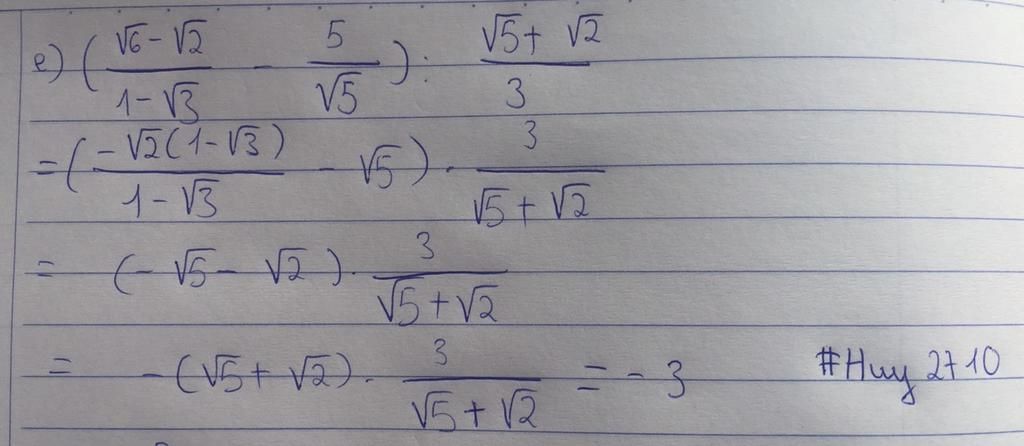 e) (\frac{√6 - √2}{1 - √3} - \frac{5}{√5}) : \frac{√5 + √2}{3}
= (\frac{-√2(1 - √3)}{1 - √3} - √5) · \frac{3}{√5 + √2}
= (- √5 - √2) · \frac{3}{√5 + √2}
= - (√5 + √2) · \frac{3}{√5 + √2} = - 3 #Huy 2710